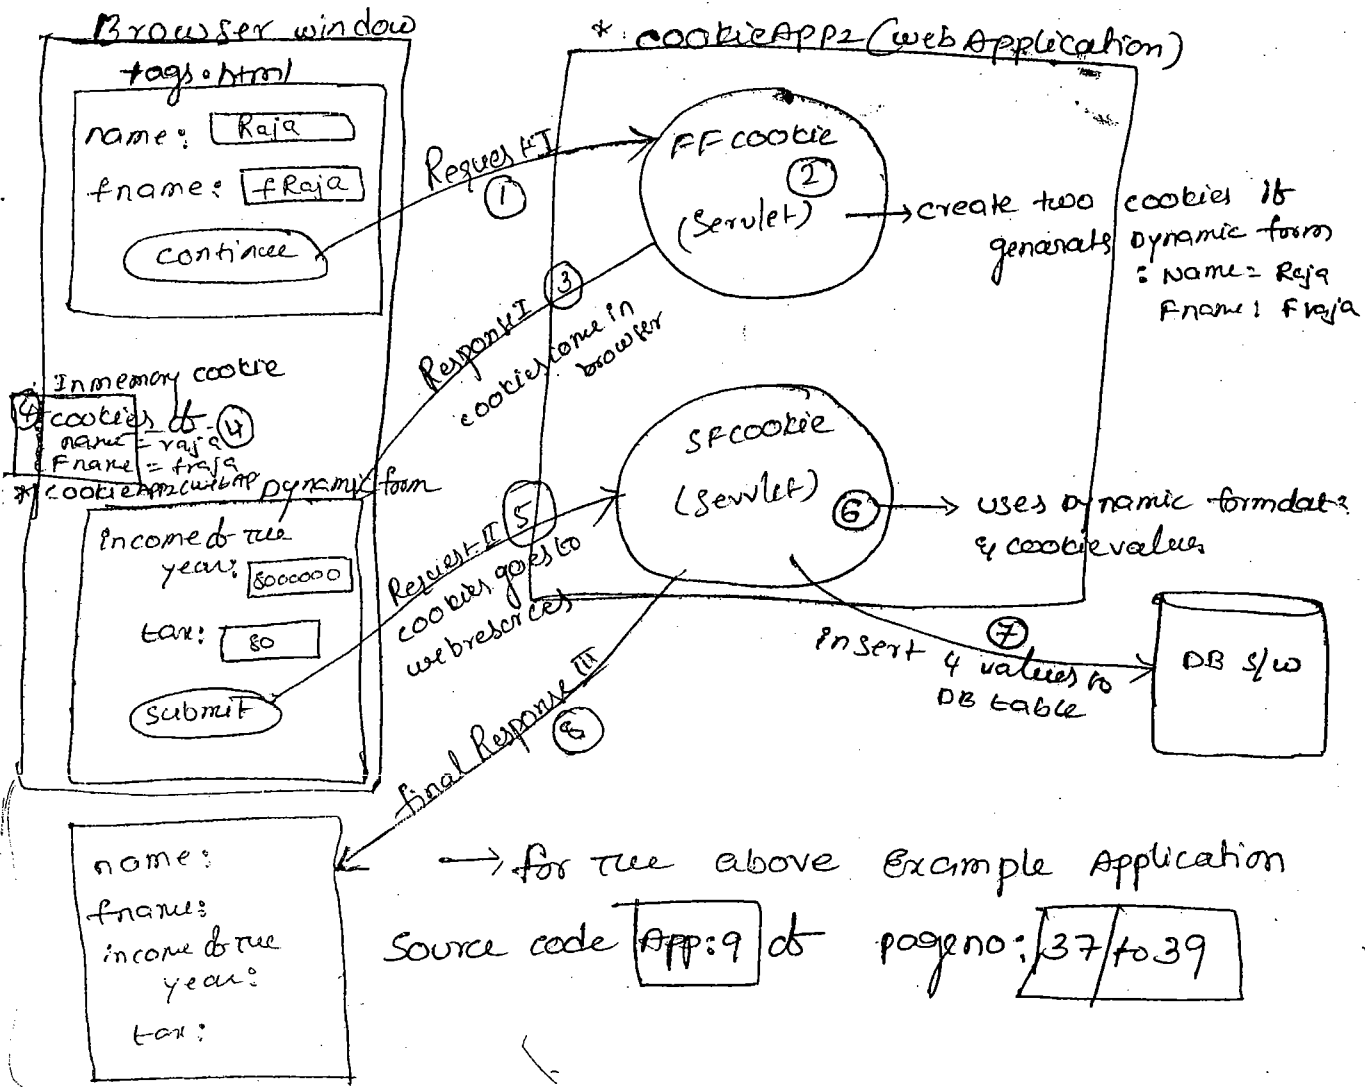 Browser window
* cookieApp2 (web Application)
tags.html
name: Raja
fname: fRaja
continue
Request I
1
FF cookie
2
(Servlet)
create two cookies it
generats Dynamic form
: Name = Raja
Fname: Fraja
Response I
3
cookies come in
browser
Inmemory cookie
4 cookies of 4
name = raja
Fname = fraja
* cookieApp2
Dynamic form
income of the
year: 8000000
tax: 80
submit
Request II
5
cookies goes to
SFcookie
(Servlet)
6
uses Dynamic formdata
& cookie values
insert 4 values to
7
DB table
DB S/w
final Response III
8
name:
fname:
income of the
year:
tax:
for the above Example Application
Source code App:9 of pageno: 37 to 39